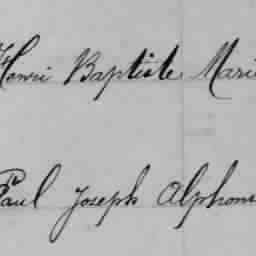 Henri Baptiste Marie
Paul Joseph Alphons